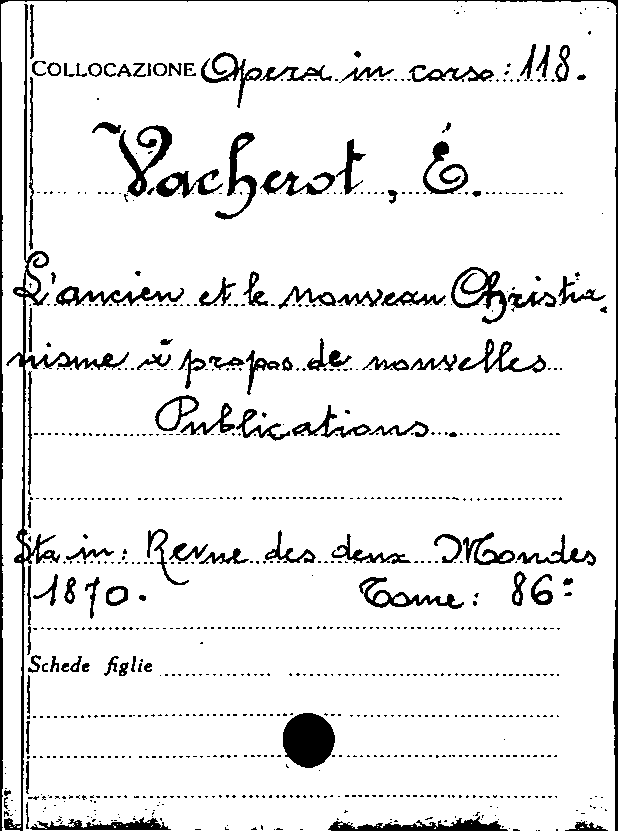 COLLOCAZIONE Opera in corso: 118.
Vacherot, É.
L'ancien et le nouveau Christia
nisme à propos de nouvelles
Publications.
Sta in: Revue des deux Mondes
1870. Tome: 86º
Schede figlie